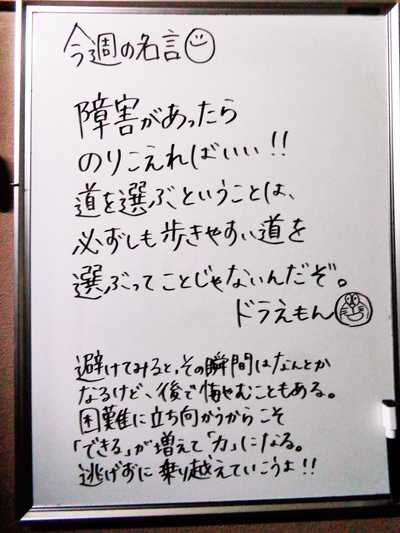 今週の名言
障害があったら
のりこえればいい!!
道を選ぶということは、
必ずしも歩きやすい道を
選ぶってことじゃないんだぞ。
ドラえもん
避けてみると、その瞬間はなんとか
なるけど、後で悔やむこともある。
困難に立ち向かうからこそ
「できる」が増えて「力」になる。
逃げずに乗り越えていこうよ!!